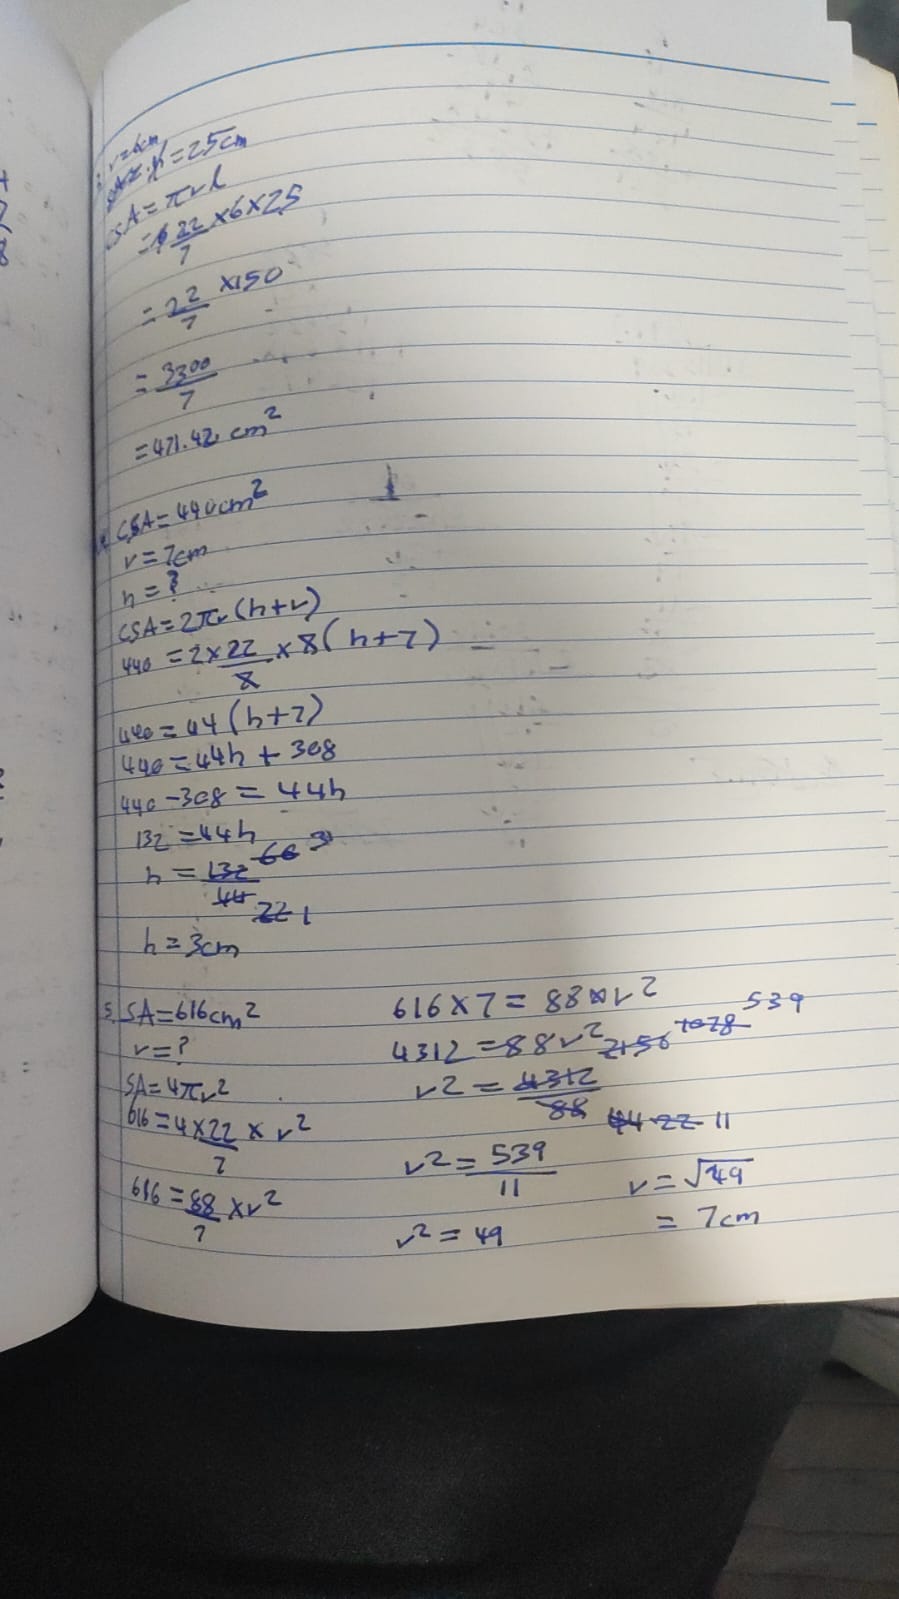 3. r=6cm
h=25cm
CSA=πrl
= 22/7 ×6×25
= 22/7 ×150
= 3300/7
=471.42 cm²
CSA=440cm²
r=7cm
h=?
CSA=2πr(h+r)
440 =2×22/8 ×8(h+7)
440=44(h+7)
440=44h + 308
440-308 = 44h
132 =44h
h = 132/44 66 3 22 1
h=3cm
5. SA=616cm²
r=?
SA=4πr²
616=4×22/7 × r²
616=88/7 ×r²
616×7= 88×r²
4312 =88r²
r² = 4312/88 2156 1078 539 44 22 11
r²=539/11
r²=49
r=√49
= 7cm